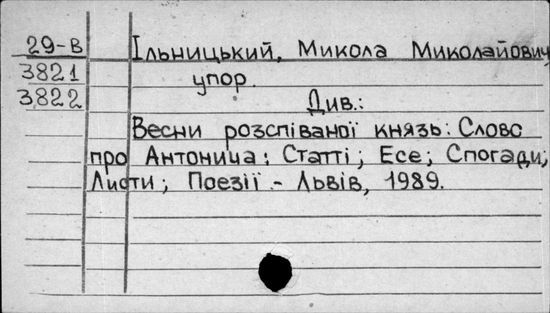 29-В Ільницький, Микола Миколайович
3821 упор.
3822 Див.:
Весни розспіваної князь: Слово
про Антонича: Статті; Есе; Спогади;
Листи; Поезії. - Львів, 1989.